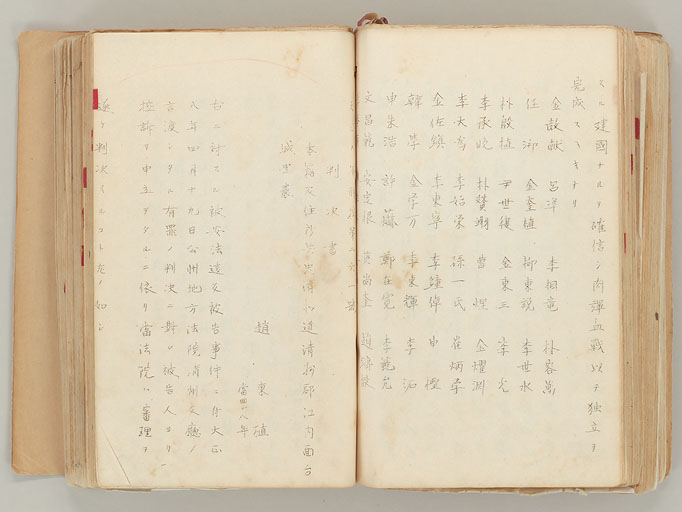 スル建國ナルヲ確信シ肉彈血戰以テ独立ヲ
完成スベキナリ
金敎献 呂準 李相竜 朴容萬
任 金奎植 柳東説 李世永
朴殷植 尹世復 金東三 李光
李承晩 朴賛翊 曹煜 金燿淵
李大為 李始栄 孫一民 崔炳学
金佐鎮 李東寧 李鍾倬 申檉
韓 金学万 李東輝 李沰
申朱浩 許 鄭在寛 李範允
文昌範 安定根 黄尚奎 趙鏞殷
判決書
本籍及住所忠清北道清州郡江内面台
城里
趙東殖
當四十八年
右ニ対スル保安法違反被告事件ニ付大正
八年四月十九日公州地方法院清州支廳ノ
言渡シタル有罪ノ判決ニ對シ被告人ヨリ
控訴ヲ申立テタルニ依リ當法院ハ審理ヲ
遂ケ判決スルコト左ノ如シ